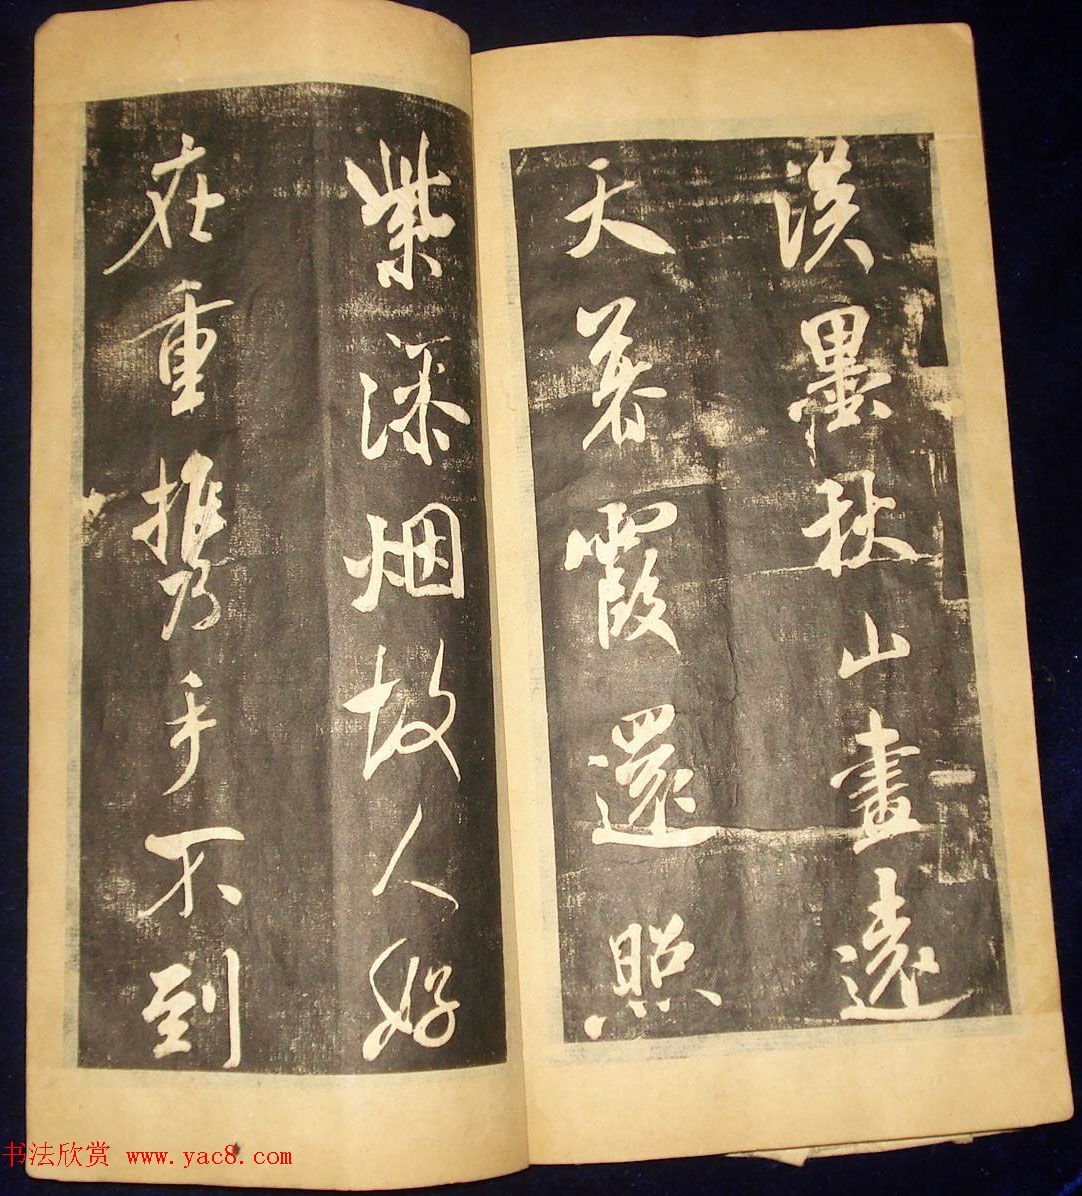 淡墨秋山畫遠
天暮霞還照
紫添烟故人好
在重携手不到
书法欣赏 www.yac8.com